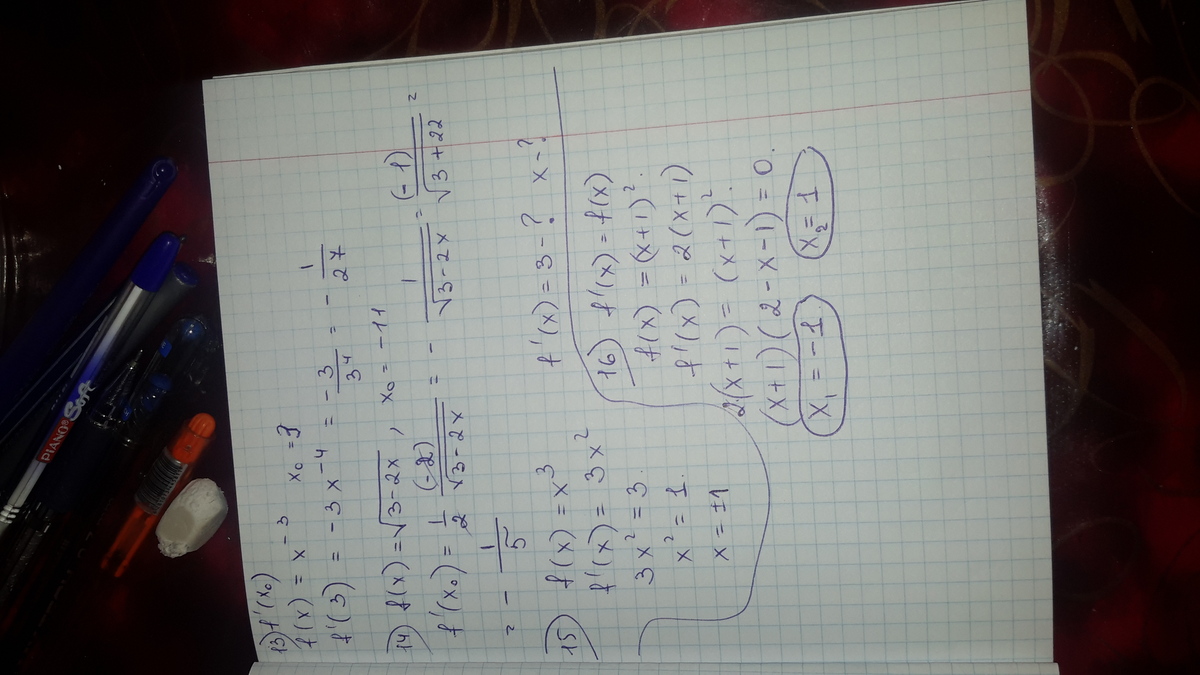 13) f'(x₀)
f(x) = x⁻³ x₀ = 3
f'(3) = -3x⁻⁴ = -3/3⁴ = -1/27
14) f(x) = √(3-2x), x₀ = -11
f'(x₀) = 1/2 (-2)/√(3-2x) = - 1/√(3-2x) = (-1)/√(3+22) =
= - 1/5
15) f(x) = x³ f'(x) = 3 - ? x - ?
f'(x) = 3x²
3x² = 3.
x² = 1.
x = ±1
16) f'(x) = f(x)
f(x) = (x+1)².
f'(x) = 2(x+1)
2(x+1) = (x+1)².
(x+1)(2-x-1) = 0.
x₁ = -1. x₂ = 1
PIANO® Soft